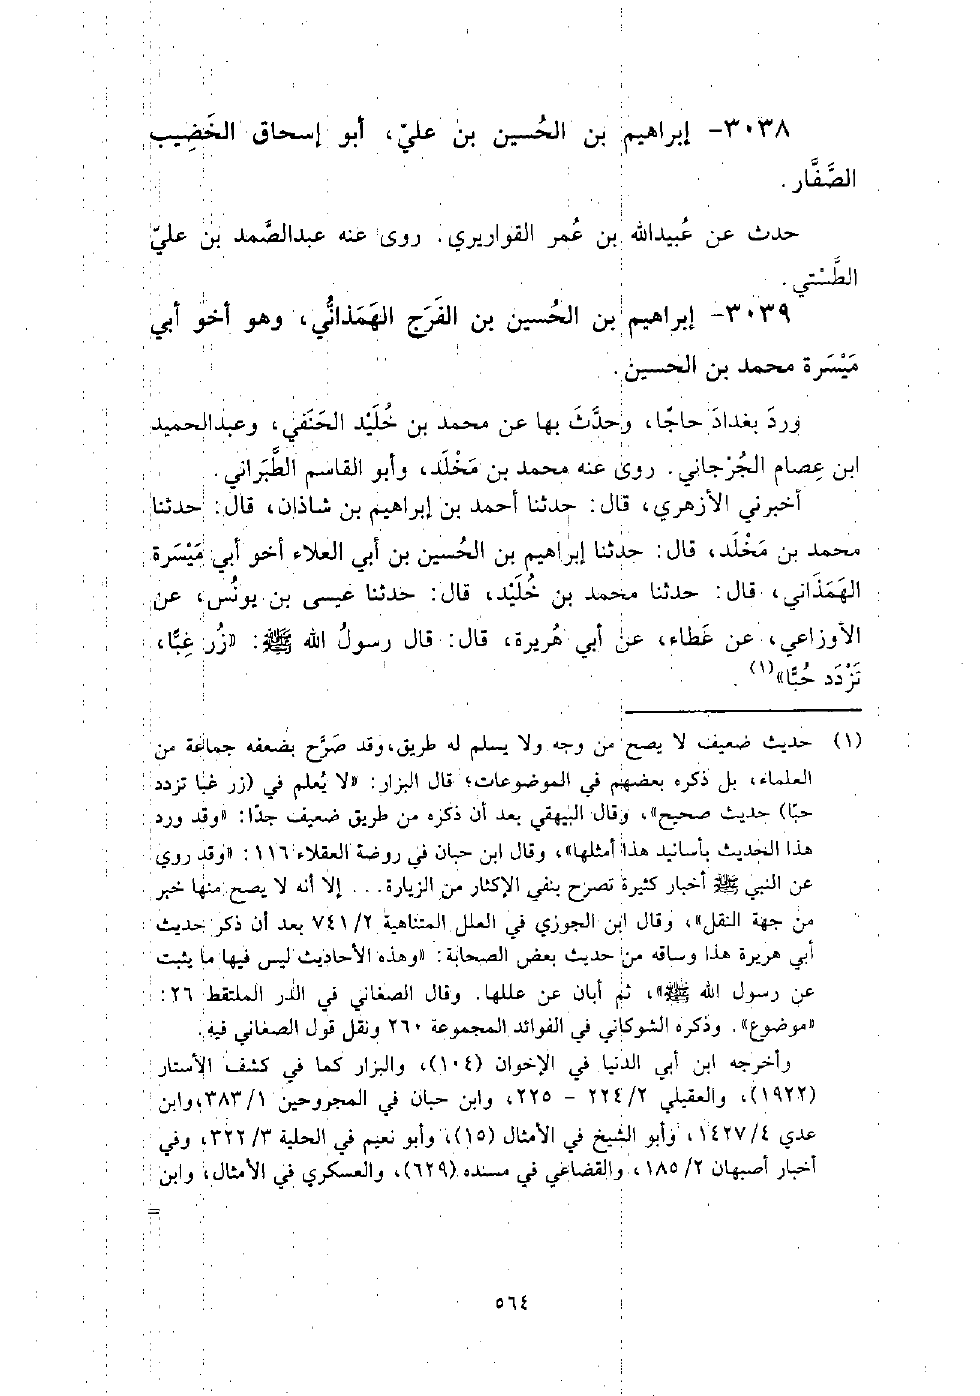 ٣٠٣٨- إبراهيم بن الحُسين بن عليّ، أبو إسحاق الخَضِيب
الصَّفَّار.
حدث عن عُبيدالله بن عُمر القواريري. روى عنه عبدالصَّمد بن عليّ
الطَّسْتي.
٣٠٣٩- إبراهيم بن الحُسين بن الفَرَج الهَمَذانُّي، وهو أخو أبي
مَيْسَرة محمد بن الحسين.
وردَ بغدادَ حاجًا، وحدَّثَ بها عن محمد بن خُلَيْد الحَنَفي، وعبدالحميد
ابن عِصام الجُرْجاني. روى عنه محمد بن مَخْلَد، وأبو القاسم الطَّبَراني.
أخبرني الأزهري، قال: حدثنا أحمد بن إبراهيم بن شاذان، قال: حدثنا
محمد بن مَخْلَد، قال: حدثنا إبراهيم بن الحُسين بن أبي العلاء أخو أبي مَيْسَرة
الهَمَذَاني، قال: حدثنا محمد بن خُلَيْد، قال: حدثنا عيسى بن يونُس، عن
الأوزاعي، عن عَطاء، عن أبي هُريرة، قال: قال رسولُ الله ﷺ: «زُر غِبًّا،
تَزْدَد حُبًّا»(١).
(١) حديث ضعيف لا يصح من وجه ولا يسلم له طريق، وقد صَرَّح بضعفه جماعة من
العلماء، بل ذكره بعضهم في الموضوعات؛ قال البزار: «لا يُعلم في (زر غبا تزدد
حبًا) حديث صحيح»، وقال البيهقي بعد أن ذكره من طريق ضعيف جدًا: «وقد ورد
هذا الحديث بأسانيد هذا أمثلها»، وقال ابن حبان في روضة العقلاء ١١٦: «وقد روي
عن النبي ﷺ أخبار كثيرة تصرح بنفي الإكثار من الزيارة... إلا أنه لا يصح منها خبر
من جهة النقل»، وقال ابن الجوزي في العلل المتناهية ٢/ ٧٤١ بعد أن ذكر حديث
أبي هريرة هذا وساقه من حديث بعض الصحابة: «وهذه الأحاديث ليس فيها ما يثبت
عن رسول الله ﷺ»، ثم أبان عن عللها. وقال الصغاني في الدر الملتقط ٢٦:
«موضوع». وذكره الشوكاني في الفوائد المجموعة ٢٦٠ ونقل قول الصغاني فيه.
وأخرجه ابن أبي الدنيا في الإخوان (١٠٤)، والبزار كما في كشف الأستار
(١٩٢٢)، والعقيلي ٢/ ٢٢٤ - ٢٢٥، وابن حبان في المجروحين ١/ ٣٨٣، وابن
عدي ٤/ ١٤٢٧، وأبو الشيخ في الأمثال (١٥)، وأبو نعيم في الحلية ٣/ ٣٢٢، وفي
أخبار أصبهان ٢/ ١٨٥، والقضاعي في مسنده (٦٢٩)، والعسكري في الأمثال، وابن
=
٥٦٤